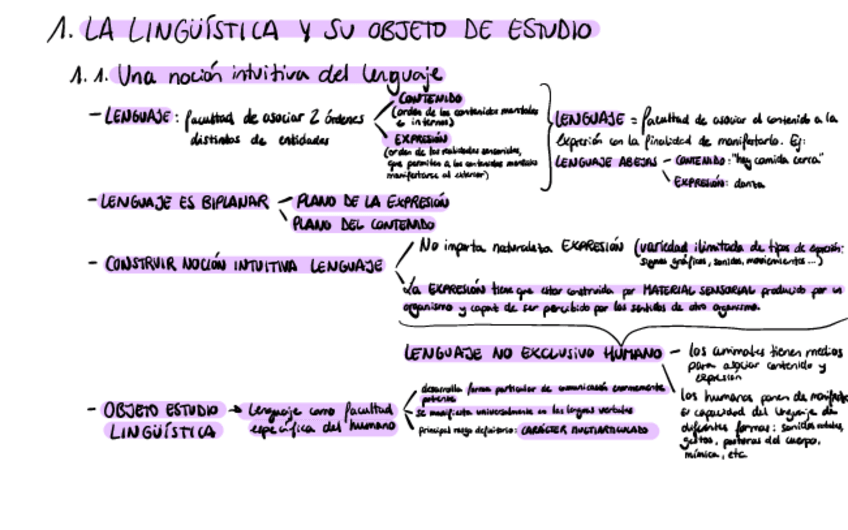 1. LA LINGÜÍSTICA Y SU OBJETO DE ESTUDIO
1.1. Una noción intuitiva del lenguaje
- LENGUAJE: facultad de asociar 2 órdenes
distintos de entidades
CONTENIDO
(orden de los contenidos mentales
e internos)
EXPRESIÓN
(orden de las realidades sensoriales,
que permiten a los contenidos mentales
manifestarse al exterior)
LENGUAJE = facultad de asociar el contenido a la
expresión con la finalidad de manifestarlo. Ej:
LENGUAJE ABEJAS - CONTENIDO: "hay comida cerca"
EXPRESIÓN: danza
- LENGUAJE ES BIPLANAR - PLANO DE LA EXPRESIÓN
PLANO DEL CONTENIDO
- CONSTRUIR NOCIÓN INTUITIVA LENGUAJE
No importa naturaleza EXPRESIÓN (variedad ilimitada de tipos de expresión:
signos gráficos, sonidos, movimientos...)
La EXPRESIÓN tiene que estar construida por MATERIAL SENSORIAL producido por un
organismo y capaz de ser percibido por los sentidos de otro organismo.
LENGUAJE NO EXCLUSIVO HUMANO - los animales tienen medios
para asociar contenido y
expresión
los humanos ponen de manifiesto
su capacidad del lenguaje de
diferentes formas: sonidos vocales,
gestos, posturas del cuerpo,
mímica, etc
- OBJETO ESTUDIO → lenguaje como facultad
LINGÜÍSTICA específica del humano
desarrolla forma particular de comunicación enormemente
potente
se manifiesta universalmente en las lenguas verbales
principal rasgo definitorio: CARÁCTER MULTIARTICULADO